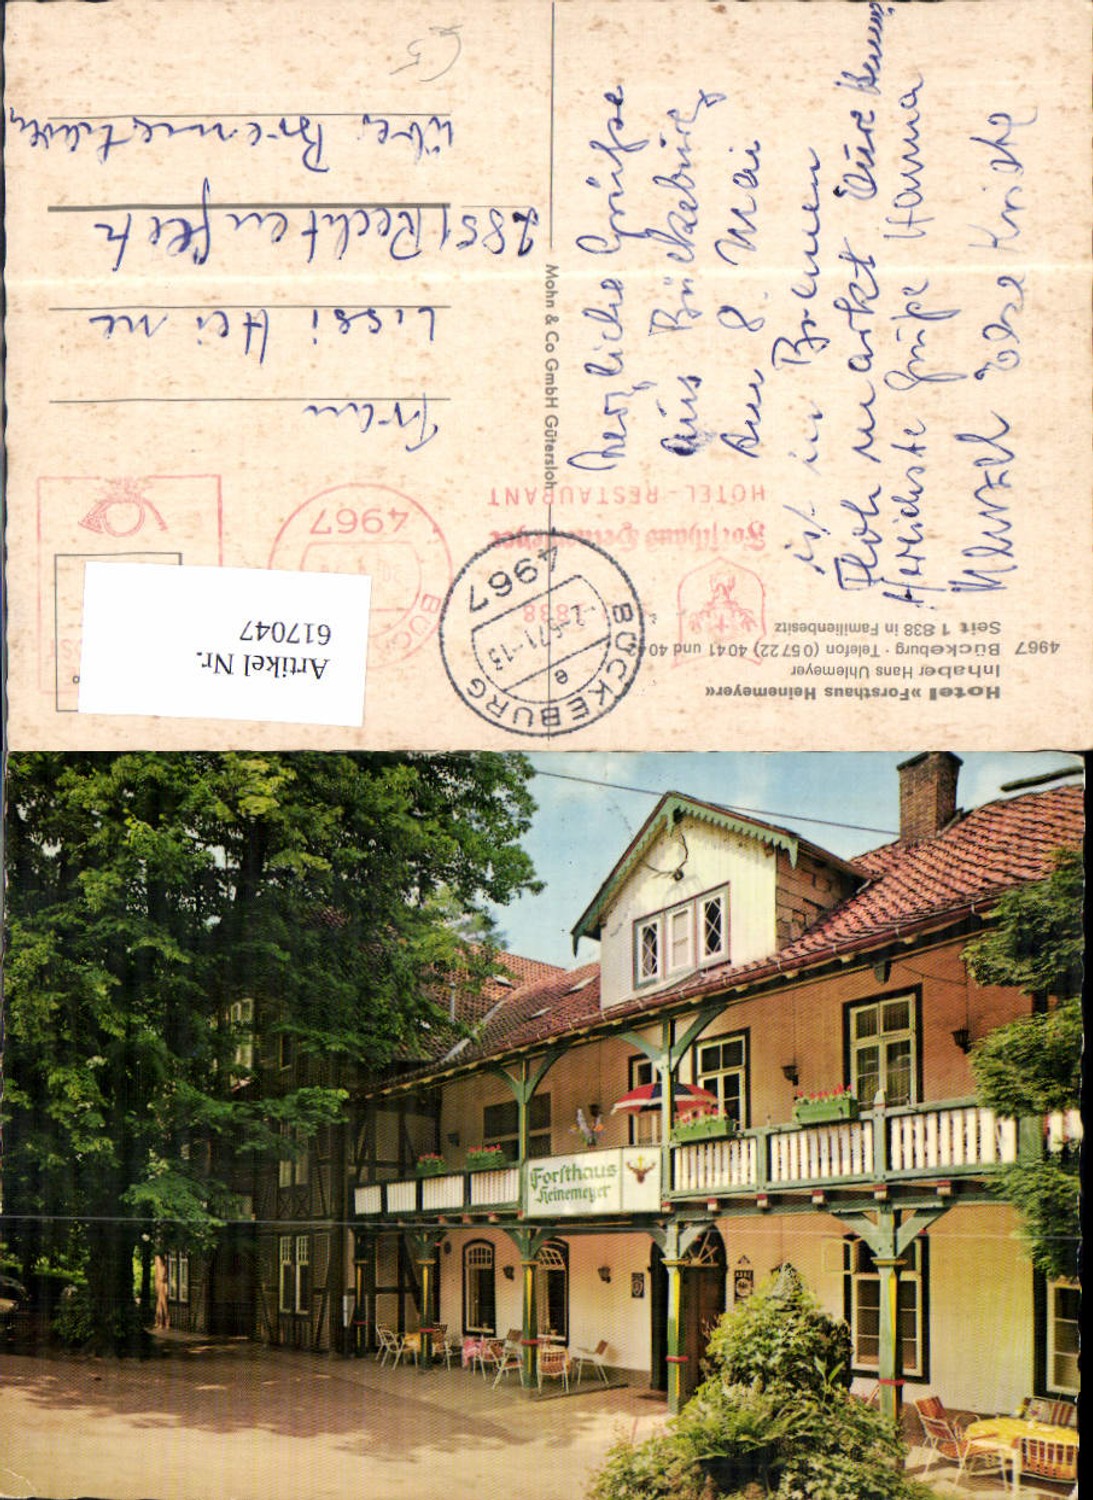 Hotel »Forsthaus Heinemeyer«
Inhaber Hans Uhlemeyer
4967 Bückeburg · Telefon (05722) 4041 und 4042
Seit 1838 in Familienbesitz
Forsthaus Heinemeyer
HOTEL-RESTAURANT
1838
4967
BÜCK
BÜCKEBURG
-2.-6.71-15
e
4967
Artikel Nr.
617047
Mohn & Co GmbH Gütersloh
Frau
Lissi Heine
2851 Rechtenfleth
über Bremerhaven
Herzliche Grüße
aus Bückeburg
den 8. Mai
ist in Bremen
Flohmarkt Eure
Herzlichste Grüße Hanna
Forsthaus
Heinemeyer